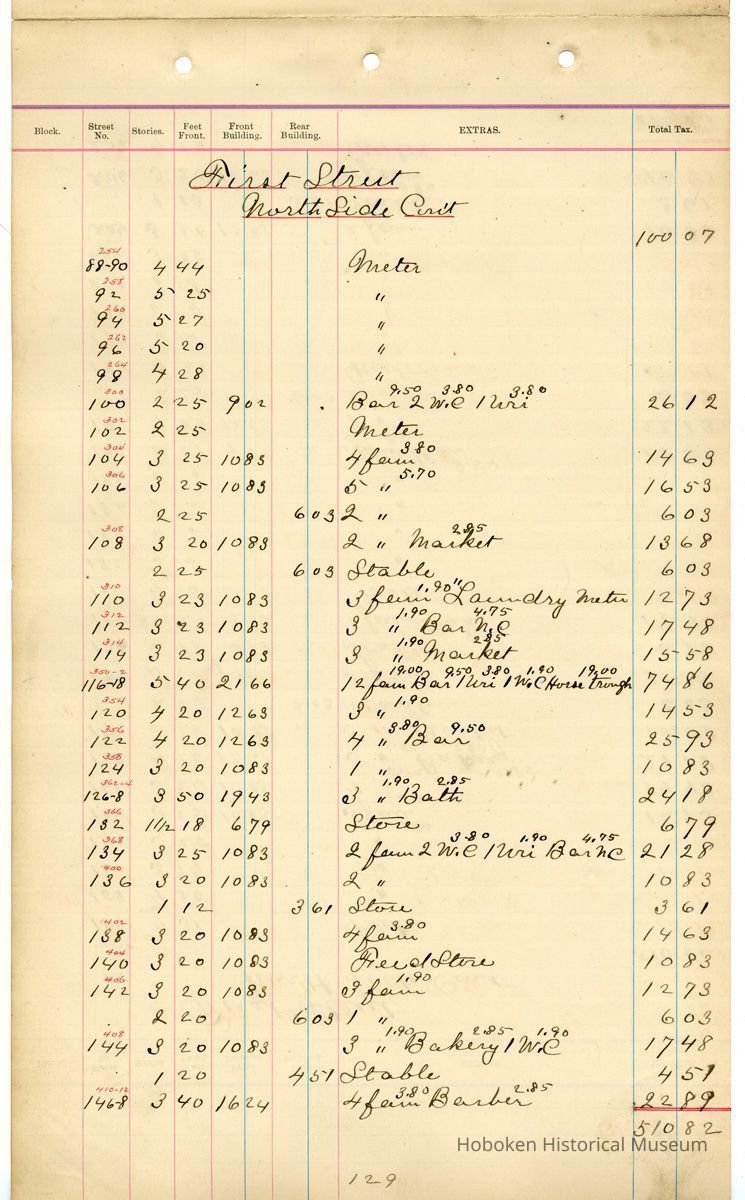 Block. Street No. Stories. Feet Front. Front Building. Rear Building. EXTRAS. Total Tax.
First Street
North Side Con't
100 07
254
88-90 4 44 Meter
258
92 5 25 "
260
94 5 27 "
262
96 5 20 "
264
98 4 28 "
300 9.50 3.80 3.80
100 2 25 9 02 Bar 2 W.C 1 Uri 26 12
302
102 2 25 Meter
304 3.80
104 3 25 10 83 4 fam 14 63
306 5.70
106 3 25 10 83 5 " 16 53
2 25 6 03 2 " 6 03
308 2.85
108 3 20 10 83 2 " Market 13 68
2 25 6 03 Stable 6 03
310 1.90 "
110 3 23 10 83 3 fam Laundry Meter 12 73
312 1.90 4.75
112 3 23 10 83 3 " Bar N.C 17 48
314 1.90 2.85
114 3 23 10 83 3 " Market 15 58
350-2 19.00 9.50 3.80 1.90 19.00
116-18 5 40 21 66 12 fam Bar 1 Uri 1 W.C Horse trough 74 86
354 1.90
120 4 20 12 63 3 " 14 53
356 3.80 9.50
122 4 20 12 63 4 " Bar 25 93
358
124 3 20 10 83 1 " 10 83
362-4 1.90 2.85
126-8 3 50 19 43 3 " Bath 24 18
366
132 1 1/2 18 6 79 Store 6 79
368 3.80 1.90 4.75
134 3 25 10 83 2 fam 2 W.C 1 Uri Bar N.C 21 28
400
136 3 20 10 83 2 " 10 83
1 12 3 61 Store 3 61
402 3.80
138 3 20 10 83 4 fam 14 63
404
140 3 20 10 83 Feed Store 10 83
406 1.90
142 3 20 10 83 3 fam 12 73
2 20 6 03 1 " 6 03
408 1.90 2.85 1.90
144 3 20 10 83 3 " Bakery 1 W.C 17 48
1 20 4 51 Stable 4 51
410-12 3.80 2.85
146-8 3 40 16 24 4 fam Barber 22 89
510 82
Hoboken Historical Museum
129